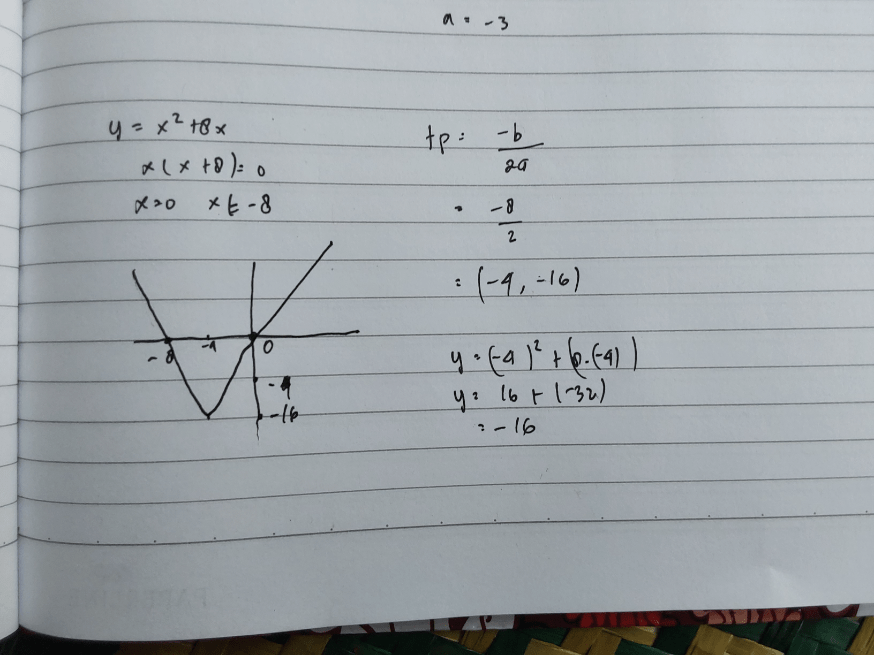 a = -3
y = x² + 8x
x(x + 8) = 0
x = 0 x = -8
tp = -b
2a
= -8
2
= (-4, -16)
-8 -4 0
-4
-16
y = (-4)² + (8.(-4))
y = 16 + (-32)
= -16